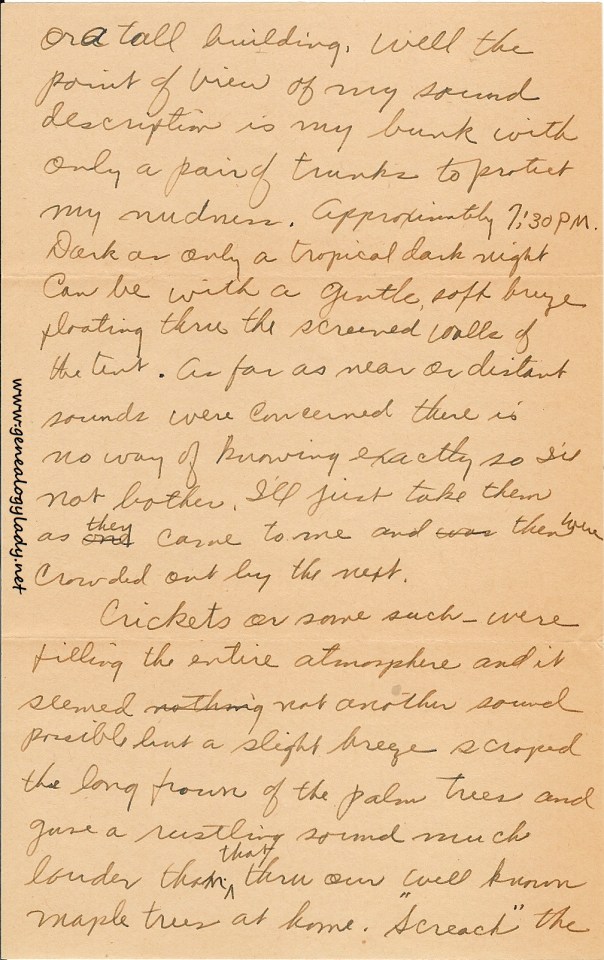 or a tall building. Well the
point of view of my sound
description is my bunk with
only a pair of trunks to protect
my nudness. Approximately 7:30 P.M.
Dark as only a tropical dark night
can be with a gentle, soft breeze
floating thru the screened walls of
the tent. As far as near or distant
sounds were concerned there is
no way of knowing exactly so I'll
not bother. I'll just take them
as one they came to me and was then were
crowded out by the next.
Crickets or some such - were
filling the entire atmosphere and it
seemed nothing not another sound
possible but a slight breeze scraped
the long frown of the palm trees and
gave a rustling sound much
louder than that thru our well known
maple trees at home. "Screach" the
www.genealogylady.net